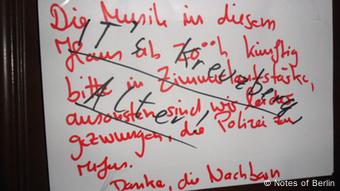 Die Musik in diesem
Haus ab 22 h künftig
bitte in Zimmerlautstärke,
ansonsten sind wir leider
gezwungen, die Polizei zu
rufen.
Danke, die Nachbarn
IT'S
Kreuzberg
Alter!
© Notes of Berlin